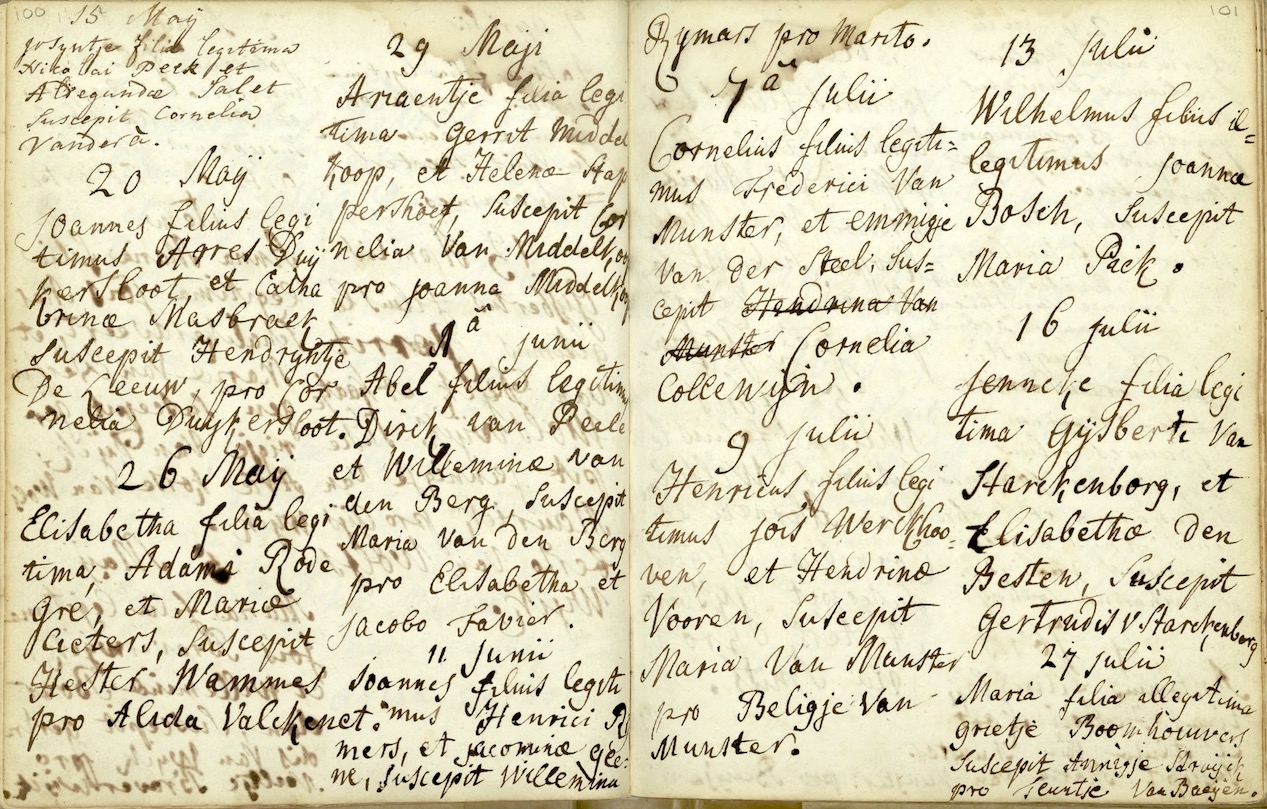 100
15 Maÿ
gosyntje filia legitima
Nikolai Peek et
Alregundæ Salet
Suscepit Cornelia
Vanderà.
20 Maÿ
Joannes filius legi
timus Agres Duij
kersloot et Catha
rinæ Masbraek
Suscepit Hendryntje
De Leeuw, pro Cor
nelia Duijkersloot.
26 Maÿ
Elisabetha filia legi
tima, Adami Rode
gré, et Mariæ
Cieters, Suscepit
Hester Wammes
pro Alida Valckenet.
29 Maji
Ariaentje filia legi
tima Gerrit Midde
koop, et Helenæ Hap
pershoef, Suscepit Cor
nelia Van Middelko
pro joanna Middelko
1â junii
Abel filius legitim
Dirck van Peele
et Willeminæ van
den Berg, Suscepit
Maria Van den Berg
pro Elisabetha et
Jacobo Favier.
11 Junii
Joannes filius legiti
mus Henrici Rij
mers, et jacominæ Gee=
ne, Suscepit Willemina
101
Rymars pro Marito.
7â Julii
Cornelius filius legiti=
mus Frederici Van
Munster, et emmigje
Van der Steel, Sus=
cepit Hendrina Van
Munster Cornelia
Collewijn.
9 Julii
Henricus filius legi
timus jois Werckhoo=
ven, et Hendrinæ
Vooren, Suscepit
Maria Van Munster
pro Beligje Van
Munster.
13 Julii
Wilhelmus filius il=
legitimus joannæ
Bosch, Suscepit
Maria Piek.
16 julii
Jenneke filia legi
tima Gijsberti Van
Starckenborg, et
Elisabethæ Den
Besten, Suscepit
Gertrudis V Starckenborg
27 julii
Maria filia allegitima
grietje Boomhouvers
Suscepit Annigje Struijck
pro Teuntje Van Baeyen.